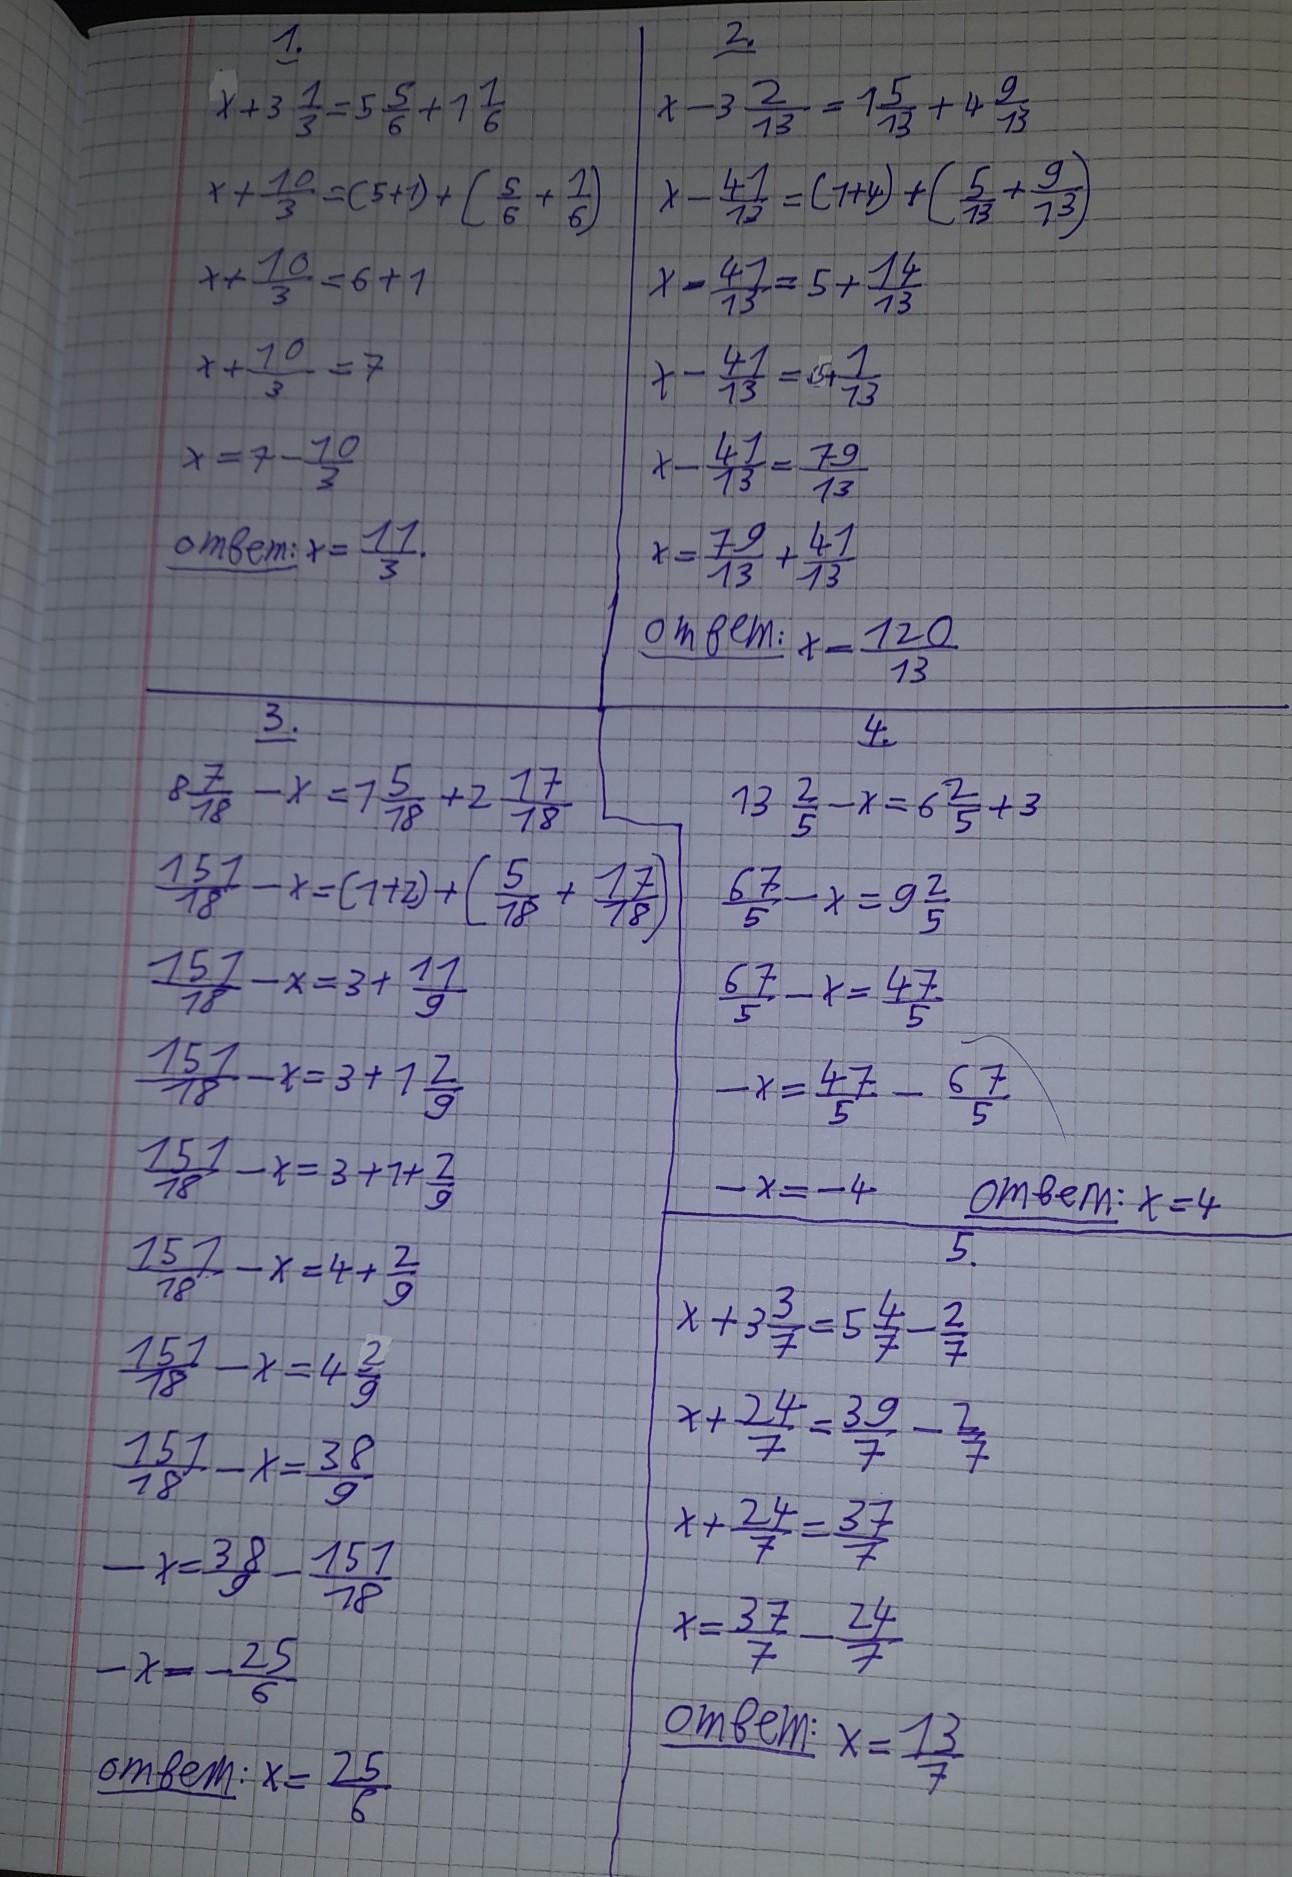 1.
x + 3 1/3 = 5 5/6 + 1 1/6
x + 10/3 = (5+1) + (5/6 + 1/6)
x + 10/3 = 6 + 1
x + 10/3 = 7
x = 7 - 10/3
ответ: x = 11/3.
2.
x - 3 2/13 = 1 5/13 + 4 9/13
x - 41/13 = (1+4) + (5/13 + 9/13)
x - 41/13 = 5 + 14/13
x - 41/13 = 5 + 1/13
x - 41/13 = 79/13
x = 79/13 + 41/13
ответ: x = 120/13
3.
8 7/18 - x = 1 5/18 + 2 17/18
151/18 - x = (1+2) + (5/18 + 17/18)
151/18 - x = 3 + 11/9
151/18 - x = 3 + 1 2/9
151/18 - x = 3 + 1 + 2/9
151/18 - x = 4 + 2/9
151/18 - x = 4 2/9
151/18 - x = 38/9
- x = 38/9 - 151/18
- x = - 25/6
ответ: x = 25/6
4.
13 2/5 - x = 6 2/5 + 3
67/5 - x = 9 2/5
67/5 - x = 47/5
- x = 47/5 - 67/5
- x = - 4 ответ: x = 4
5.
x + 3 3/7 = 5 4/7 - 2/7
x + 24/7 = 39/7 - 2/7
x + 24/7 = 37/7
x = 37/7 - 24/7
ответ: x = 13/7